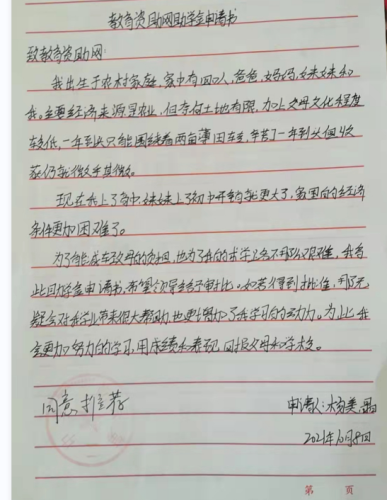 教育资助网助学金申请书
致教育资助网：
我出生于农村家庭，家中有四口人，爸爸，妈妈，妹妹和
我。主要经济来源是农业，但每年土地有限，加上父母文化程度
较低，一年到头只能围绕着两亩薄田在转，辛苦了一年到头但收
获仍就微乎其微。
现在我上了高中妹妹上了初中开销就更大了，贫困的经济
条件更加困难了。
为了能减轻父母的负担，也为了我的求学之路不那么艰难，我
此回申请书，希望领导给予审批。如若得到批准，那无
疑会对我学业带来很大帮助，也更增加了我学习的动力。为此我
会更加努力的学习，用成绩和表现回报父母和学校。
同意推荐
申请人：杨美
2021年10月8日
第 页